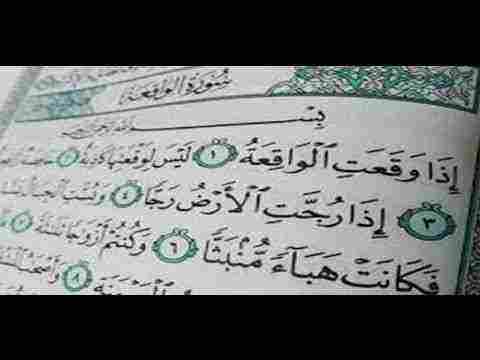 سُورَةُ الوَاقِعَة
بِسْمِ ٱللَّهِ ٱلرَّحْمَٰنِ ٱلرَّحِيمِ
إِذَا وَقَعَتِ ٱلْوَاقِعَةُ ١ لَيْسَ لِوَقْعَتِهَا كَاذِبَةٌ ٢ خَافِضَةٌ
٣ إِذَا رُجَّتِ ٱلْأَرْضُ رَجًّا ٤ وَبُسَّتِ ٱلْجِبَالُ
فَكَانَتْ هَبَآءً مُّنۢبَثًّا ٦ وَكُنتُمْ أَزْوَٰجًا ثَلَٰثَةً ٧
ٱلْمَيْمَنَةِ ٨ وَأَصْحَٰبُ